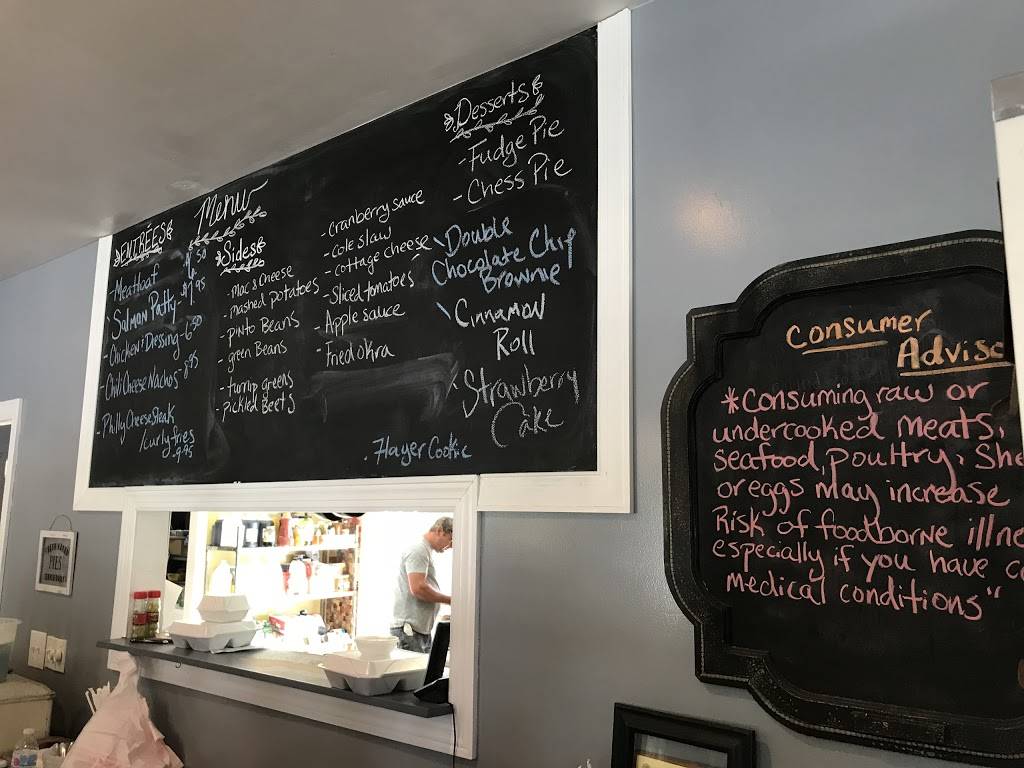 Menu
ENTRÉES
- Meatloaf
Salmon Patty
- Chicken & Dressing - 6.50
- Chili Cheese Nachos - 8.95
- Philly Cheese Steak
/curly fries
- 9.95
Sides
- Mac & Cheese
- mashed potatoes
- pinto Beans
- green Beans
- turnip greens
- Pickled Beets
- cranberry sauce
- cole slaw
- cottage cheese
- Sliced tomatoes
- Apple sauce
- Fried okra
Desserts
- Fudge Pie
- Chess Pie
Double
Chocolate Chip
Brownie
Cinnamon
Roll
Strawberry
Cake
7 layer Cookie
Consumer
Adviso
*Consuming raw or
undercooked meats,
seafood, poultry, She
or eggs may increase
Risk of foodborne illne
especially if you have
medical conditions"